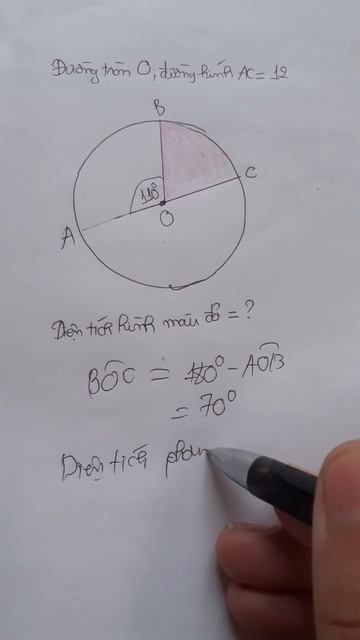 Đường tròn O, đường kính AC = 12
B
C
110°
O
A
Diện tích hình màu đỏ = ?
BOC = 180° - AOB
= 70°
Diện tích phần